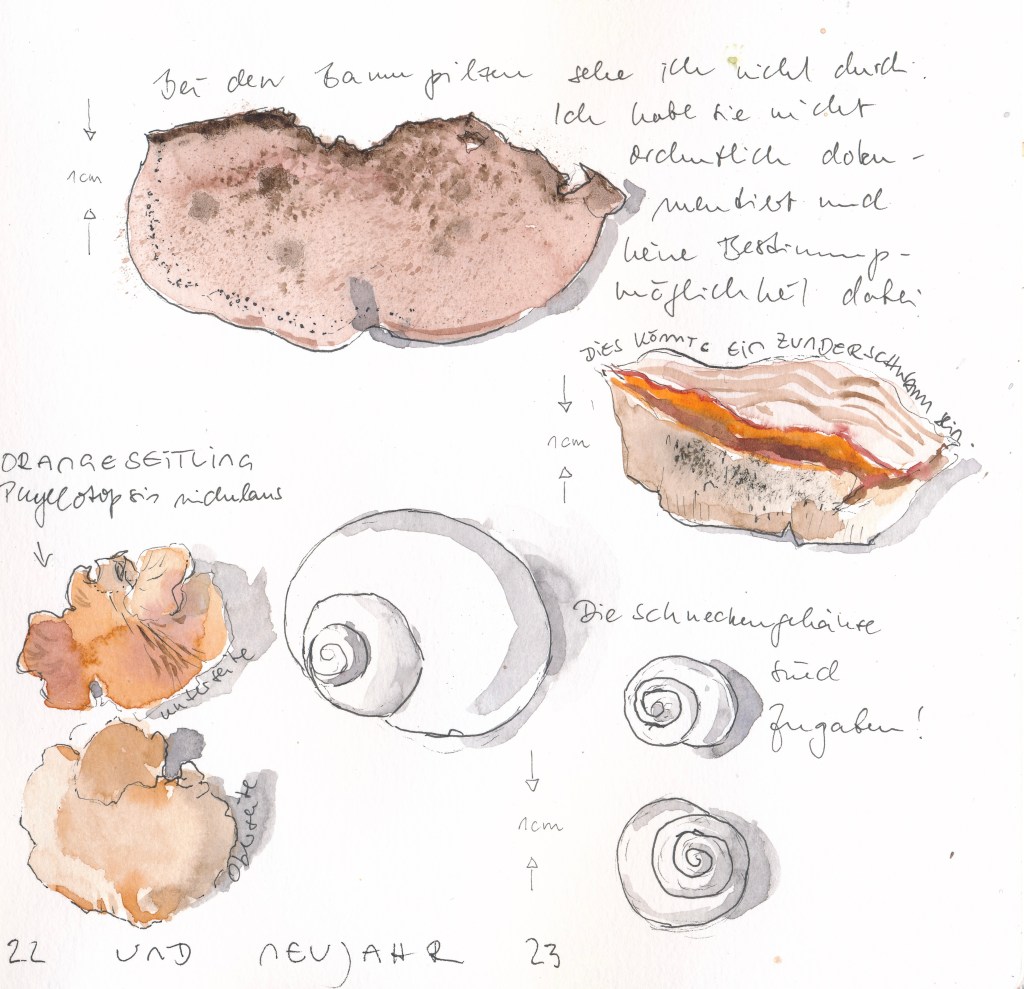 Bei den Baumpilzen sehe ich nicht durch.
Ich habe sie nicht
ordentlich doku-
mentiert und
keine Bestimmungs-
möglichkeit dabei
1cm
DIES KÖNNTE EIN ZUNDERSCHWAMM sein.
1cm
ORANGESEITLING
Phyllotopsis nidulans
unterseite
Oberseite
Die Schneckengehäuse
sind
Zugaben!
1cm
22 UND NEUJAHR 23